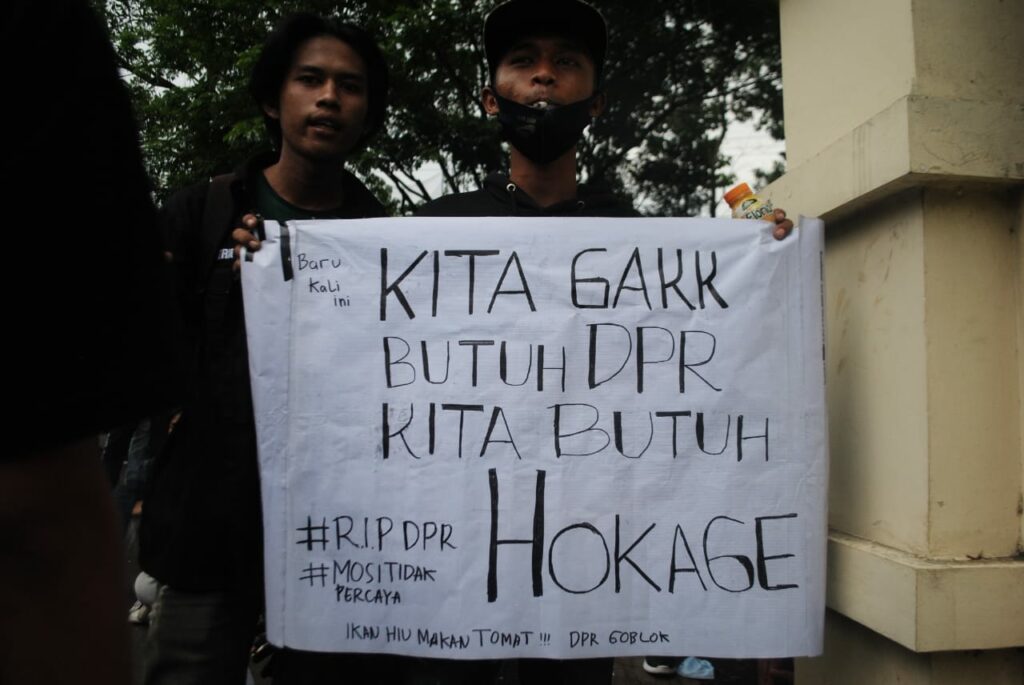 Baru
Kali
ini
KITA GAKK
BUTUH DPR
KITA BUTUH
HOKAGE
#R.I.P DPR
#MOSITIDAK
PERCAYA
IKAN HIU MAKAN TOMAT !!! DPR GOBLOK